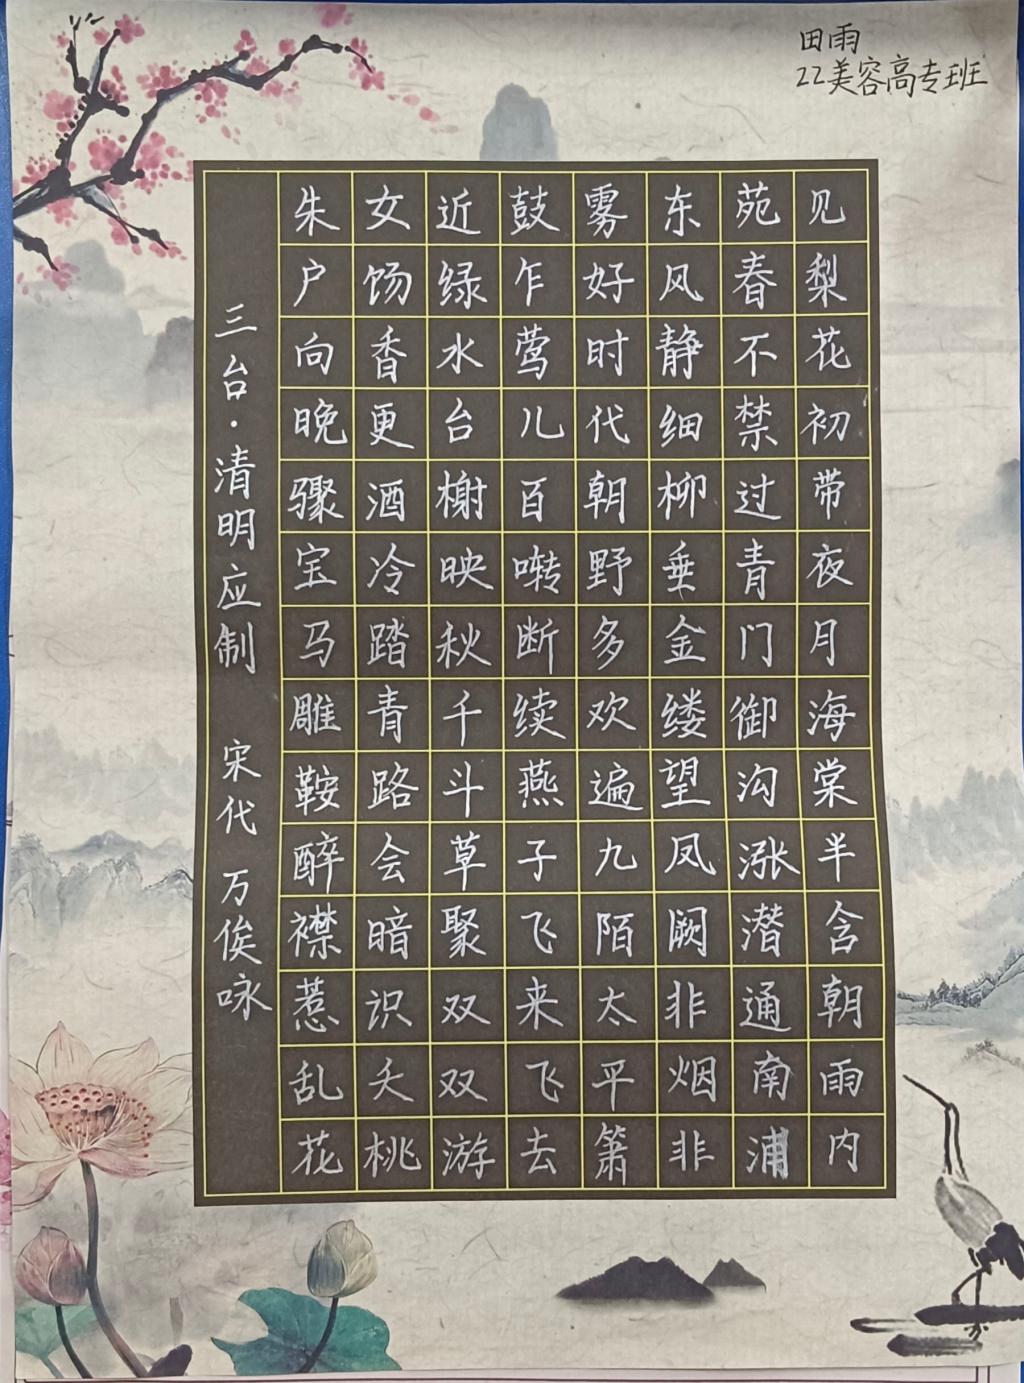 田雨
22美容高专班
见梨花初带夜月海棠半含朝雨内
苑春不禁过青门御沟涨潜通南浦
东风静细柳垂金缕望凤阙非烟非
雾好时代朝野多欢遍九陌太平箫
鼓乍莺儿百啭断续燕子飞来飞去
近绿水台榭映秋千斗草聚双双游
女饧香更酒冷踏青路会暗识夭桃
朱户向晚骤宝马雕鞍醉襟惹乱花
三台·清明应制 宋代 万俟咏